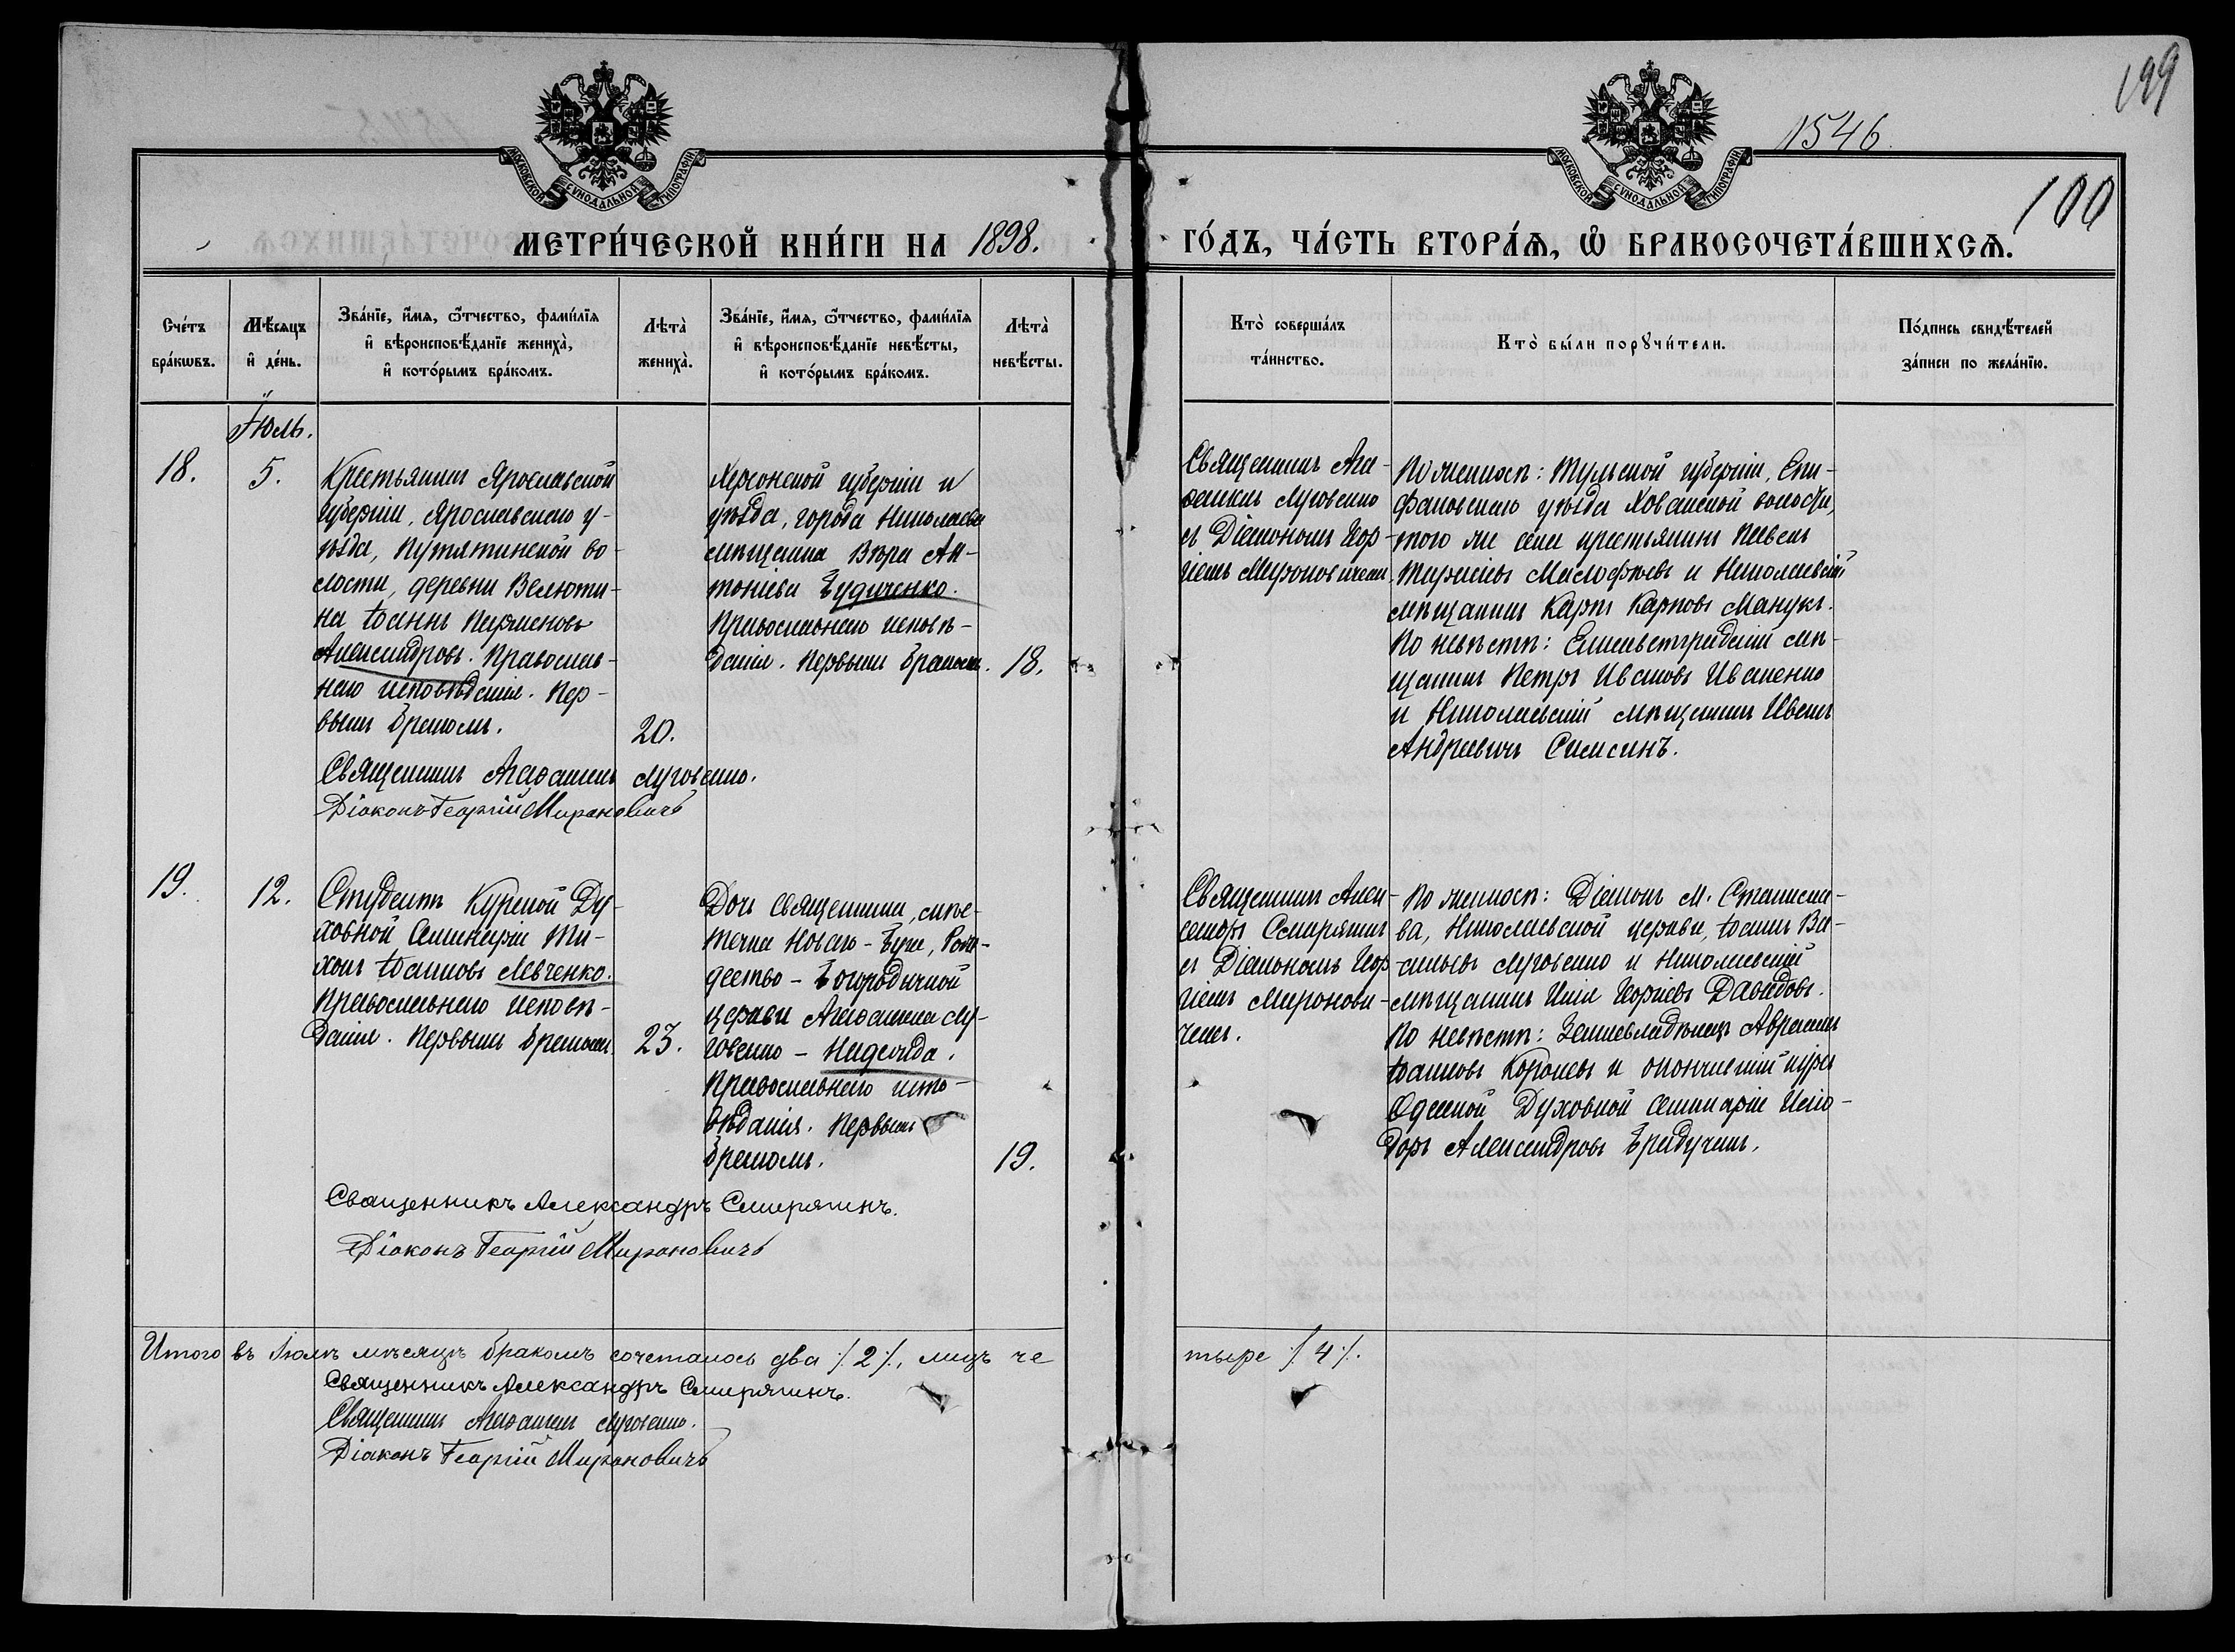 199
1546.
100
МОСКОВСКОЙ СѴНОДАЛЬНОЙ ТИПОГРАФІИ
МОСКОВСКОЙ СѴНОДАЛЬНОЙ ТИПОГРАФІИ
МЕТРИ́ЧЕСКОЙ КНИ́ГИ НА 1898.
ГО́ДЪ, ЧА́СТЬ ВТОРА́Ѧ, Ѽ БРАКОСОЧЕТА́ВШИХСѦ.
Сче́тъ бра́кѡвъ.
Мѣ́сяцъ и҆ де́нь.
Зва́нїе, и҆́мѧ, ѻ҆́тчество, фами́лїѧ
и҆ вѣроисповѣ́данїе жениха̀,
и҆ кото́рымъ бра́комъ.
Лѣта̀ жениха̀.
Зва́нїе, и҆́мѧ, ѻ҆́тчество, фами́лїѧ
и҆ вѣроисповѣ́данїе невѣ́сты,
и҆ кото́рымъ бра́комъ.
Лѣта̀ невѣ́сты.
Кто̀ соверша́лъ та́инство.
Кто̀ бы́ли порꙋчи́тели.
По́дпись свидѣ́телей
за́писи по жела́нїю.
Іюль.
18.
5.
Крестьянинъ Ярославской
губерніи, Ярославскаго у-
ѣзда, Путятинской во-
лости, деревни Велюти-
на Іоаннъ Парменовъ
Александровъ. Православ-
наго исповѣданія. Пер-
вымъ бракомъ.
20.
Священникъ Агаѳангелъ Луговенко.
Діаконъ Георгій Мироновичъ
Херсонской губерніи и
уѣзда, города Николаева
мѣщанка Вѣра Ан-
тоніева Будиченко.
Православнаго исповѣ-
данія. Первымъ бракомъ.
18.
Священникъ Ага-
ѳангелъ Луговенко
съ Діакономъ Геор-
гіемъ Мироновичемъ.
По женихѣ: Тульской губерніи, Епи-
фановскаго уѣзда Хованской волости,
того же села крестьянинъ Павелъ
Тарасіевъ Малофѣевъ и Николаевскій
мѣщанинъ Карпъ Карповъ Манукъ.
По невѣстѣ: Елисаветградскій мѣ-
щанинъ Петръ Ивановъ Иваненко
и Николаевскій мѣщанинъ Иванъ
Андреевичъ Симсинъ.
19.
12.
Студентъ Курской Ду-
ховной Семинаріи Ти-
хонъ Іоанновъ Левченко.
Православнаго исповѣ-
данія. Первымъ бракомъ.
23.
Дочь священника, мѣс-
течка Новаго-Буга, Рож-
дество-Богородичной
церкви Агаѳангела Лу-
говенко - Надежда.
Православнаго испо-
вѣданія. Первымъ
бракомъ.
19.
Священникъ Алек-
сандръ Смирягинъ
съ Діакономъ Геор-
гіемъ Миронови-
чемъ.
По женихѣ: Діаконъ М. Станисла-
ва, Николаевской церкви, Іоаннъ Ва-
сильевъ Луговенко и Николаевскій
мѣщанинъ Илія Георгіевъ Давидовъ.
По невѣстѣ: Землевладѣлецъ Авраамъ
Іоанновъ Королевъ и окончившій курсъ
Одесской Духовной Семинаріи Исио-
доръ Александровъ Бридучинъ.
Священникъ Александръ Смирягинъ.
Діаконъ Георгій Мироновичъ
Итого въ Іюлѣ мѣсяцѣ бракомъ сочеталось два /.2/., лицъ че
тыре /.4/.
Священникъ Александръ Смирягинъ.
Священникъ Агаѳангелъ Луговенко.
Діаконъ Георгій Мироновичъ